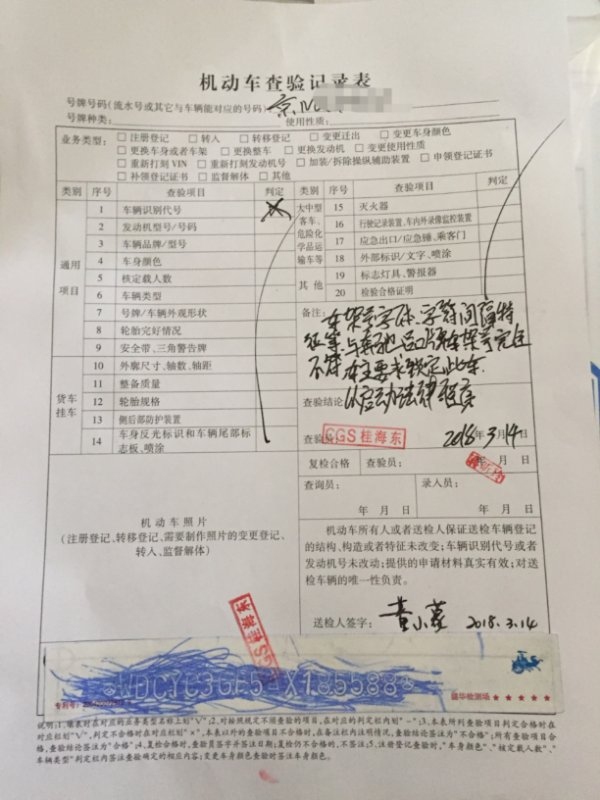 机动车查验记录表
号牌号码(流水号或其它与车辆能对应的号码):京
号牌种类: 使用性质:
业务类型: □ 注册登记 □ 转入 □ 转移登记 □ 变更迁出 □ 变更车身颜色
□ 更换车身或者车架 □ 更换整车 □ 更换发动机 □ 变更使用性质
□ 重新打刻 VIN □ 重新打刻发动机号 □ 加装/拆除操纵辅助装置 □ 申领登记证书
□ 补领登记证书 □ 监督解体 □ 其他
类别 序号 查验项目 判定
通用项目
1 车辆识别代号 ×
2 发动机型号/号码
3 车辆品牌/型号
4 车身颜色
5 核定载人数
6 车辆类型
7 号牌/车辆外观形状
8 轮胎完好情况
9 安全带、三角警告牌
货车挂车
10 外廓尺寸、轴数、轴距
11 整备质量
12 轮胎规格
13 侧后部防护装置
14 车身反光标识和车辆尾部标
志板、喷涂
类别 序号 查验项目 判定
大中型
客车、
危险化
学品运
输车等
15 灭火器
16 行驶记录装置、车内外录像监控装置
17 应急出口/应急锤、乘客门
18 外部标识/文字、喷涂
其他
19 标志灯具、警报器
20 检验合格证明
备注:
字体、字符间隔特
征等与
不符 车主要求锁定此车
以启动法律程序
查验结论
查验员: CGS桂海东 2018年3月14日
复检合格 查验员: 年 月 日
查询员: 录入员:
年 月 日 年 月 日
机动车照片
(注册登记、转移登记、需要制作照片的变更登记、
转入、监督解体)
机动车所有人或者送检人保证送检车辆登记
的结构、构造或者特征未改变;车辆识别代号或者
发动机号未改动;提供的申请材料真实有效;对送
检车辆的唯一性负责。
送检人签字: 2018.3.14
CGS桂海东
专利号:
盛华检测场 ★ ★ ★ ★ ★
说明:1.填表时在对应的业务类型名称上划"√";2.对按照规定不须查验的项目,在对应的判定栏内划"-";3.本表所列查验项目判定合格时在
对应栏划"√",判定不合格时在对应栏划"×",本表以外的查验项目不合格时,在备注栏内注明情况,查验结论签注为"不合格";所有查验项目合
格,查验结论签注为"合格";4.复检合格时,查验员签字并签注日期;复检仍不合格的,不签注;5.注册登记查验时,"车身颜色"、"核定载人数"、"
车辆类型"判定栏内签注查验确定的相应内容;变更车身颜色查验时签注车身颜色。